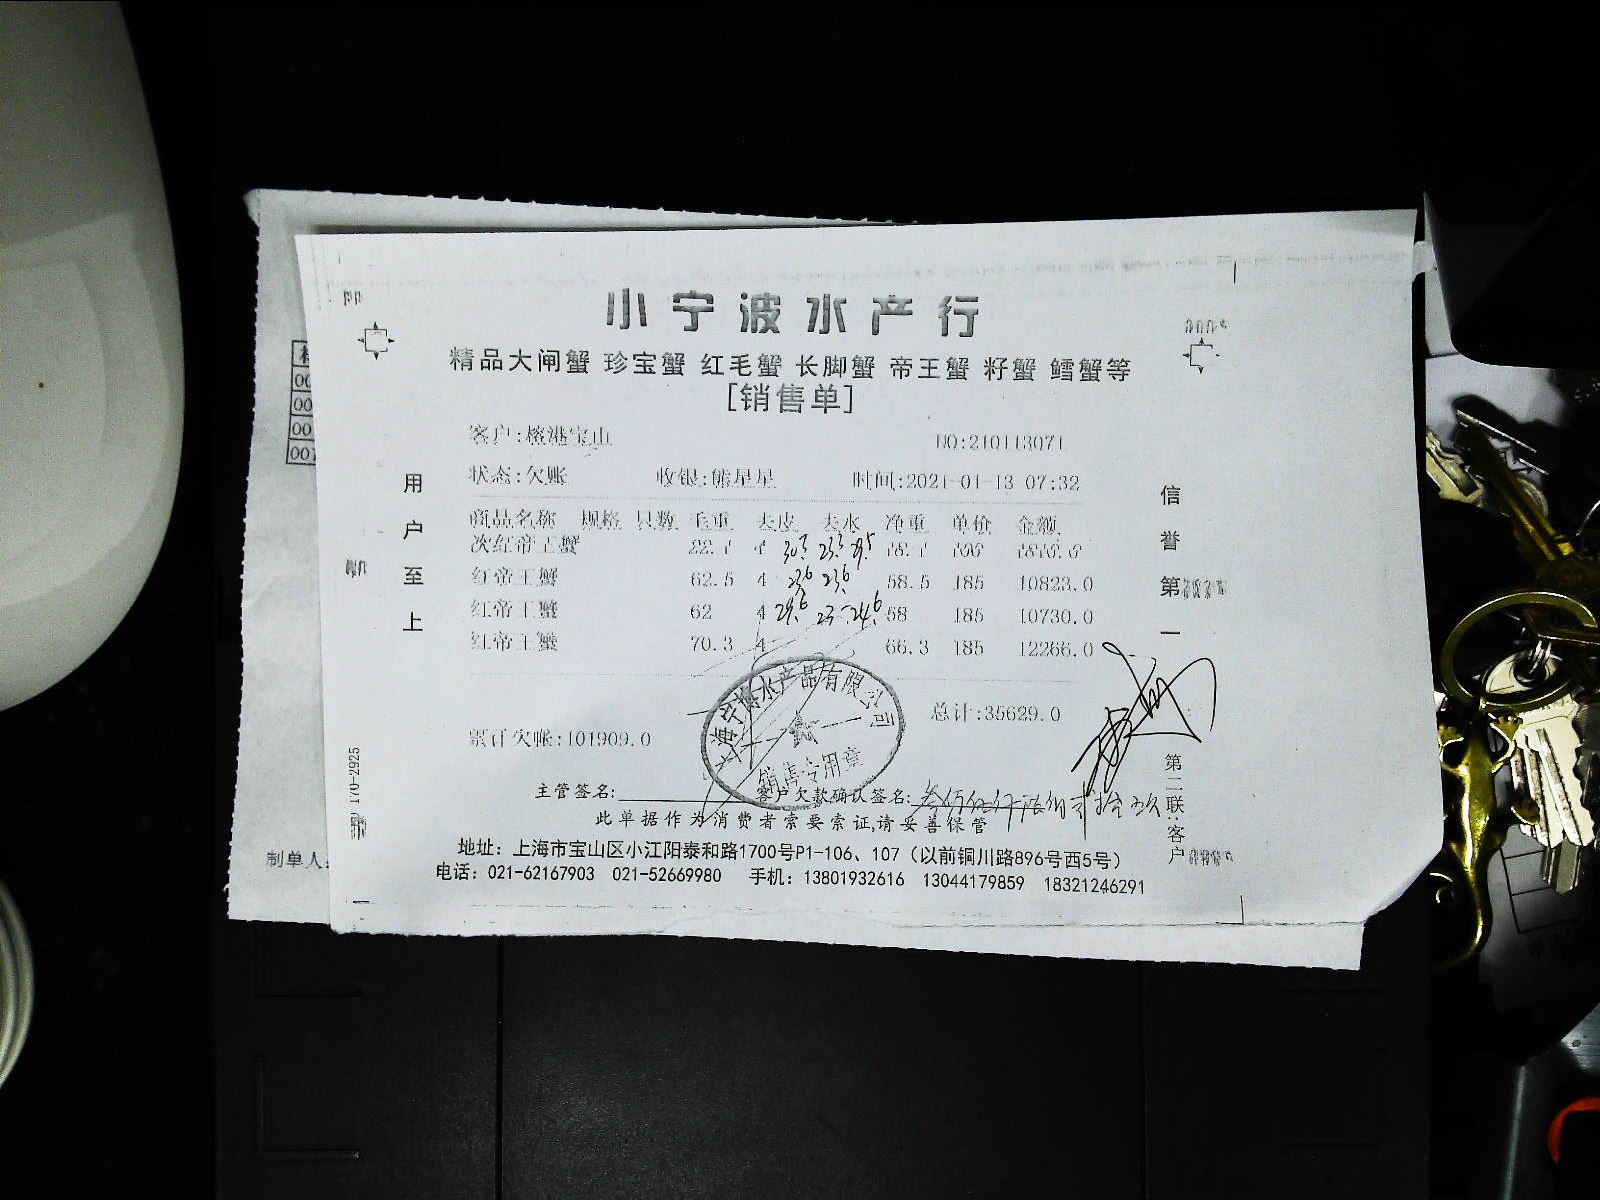 小宁波水产行
精品大闸蟹 珍宝蟹 红毛蟹 长脚蟹 帝王蟹 籽蟹 鳕蟹等
[销售单]
客户:榕港宝山 NO:210113071
状态:欠账 收银:熊星星 时间:2021-01-13 07:32
商品名称 规格 只数 毛重 去皮 去水 净重 单价 金额
次红帝王蟹 22.1 4
红帝王蟹 62.5 4 58.5 185 10823.0
红帝王蟹 62 4 58 185 10730.0
红帝王蟹 70.3 4 66.3 185 12266.0
总计:35629.0
累计欠帐:101909.0
主管签名: 客户欠款确认签名:
此单据作为消费者索要索证,请妥善保管
地址：上海市宝山区小江阳泰和路1700号P1-106、107（以前铜川路896号西5号）
电话：021-62167903 021-52669980 手机：13801932616 13044179859 18321246291
用户至上
信誉第一
第二联:客户
170-2925
水产品有限公司
销售专用章
制单人: